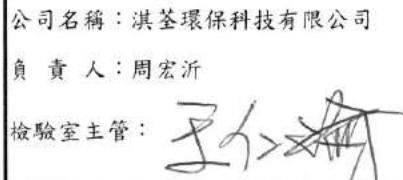 公司名稱：淇荃環保科技有限公司
負 責 人：周宏沂
檢驗室主管：